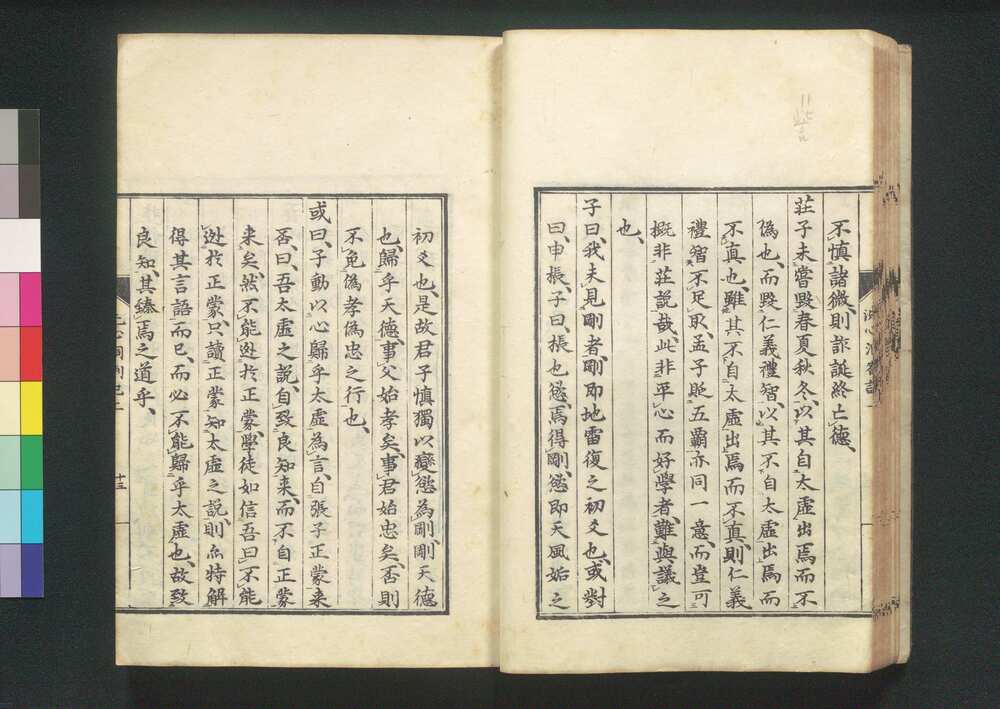 不慎諸微、則詐誕終亡德、
莊子未嘗毀春夏秋冬、以其自太虛出焉而不
偽也、而毀仁義禮智、以其不自太虛出焉而
不真也、雖其不自太虛出焉而不真、則仁義
禮智不足取、孟子貶五霸亦同一意、而豈可
擬非莊說哉、此非平心而好學者、難與議之
也、
子曰、我未見剛者、剛即地雷復之初爻也、或對
曰、申棖、子曰、棖也慾、焉得剛、慾即天風姤之
初爻也、是故君子慎獨以變慾為剛、剛天德
也、歸乎天德、事父始孝矣、事君始忠矣、否則
不免偽孝偽忠之行也、
或曰、子動以心歸乎太虛為言、自張子正蒙來
否、曰、吾太虛之說、自致良知來、而不自正蒙
来矣、然不能逃於正蒙、學徒如信吾曰不能
逃於正蒙、只讀正蒙知太虛之說、則亦特解
得其言語而已、而必不能歸乎太虛也、故致
良知、其臻焉之道乎、
十三